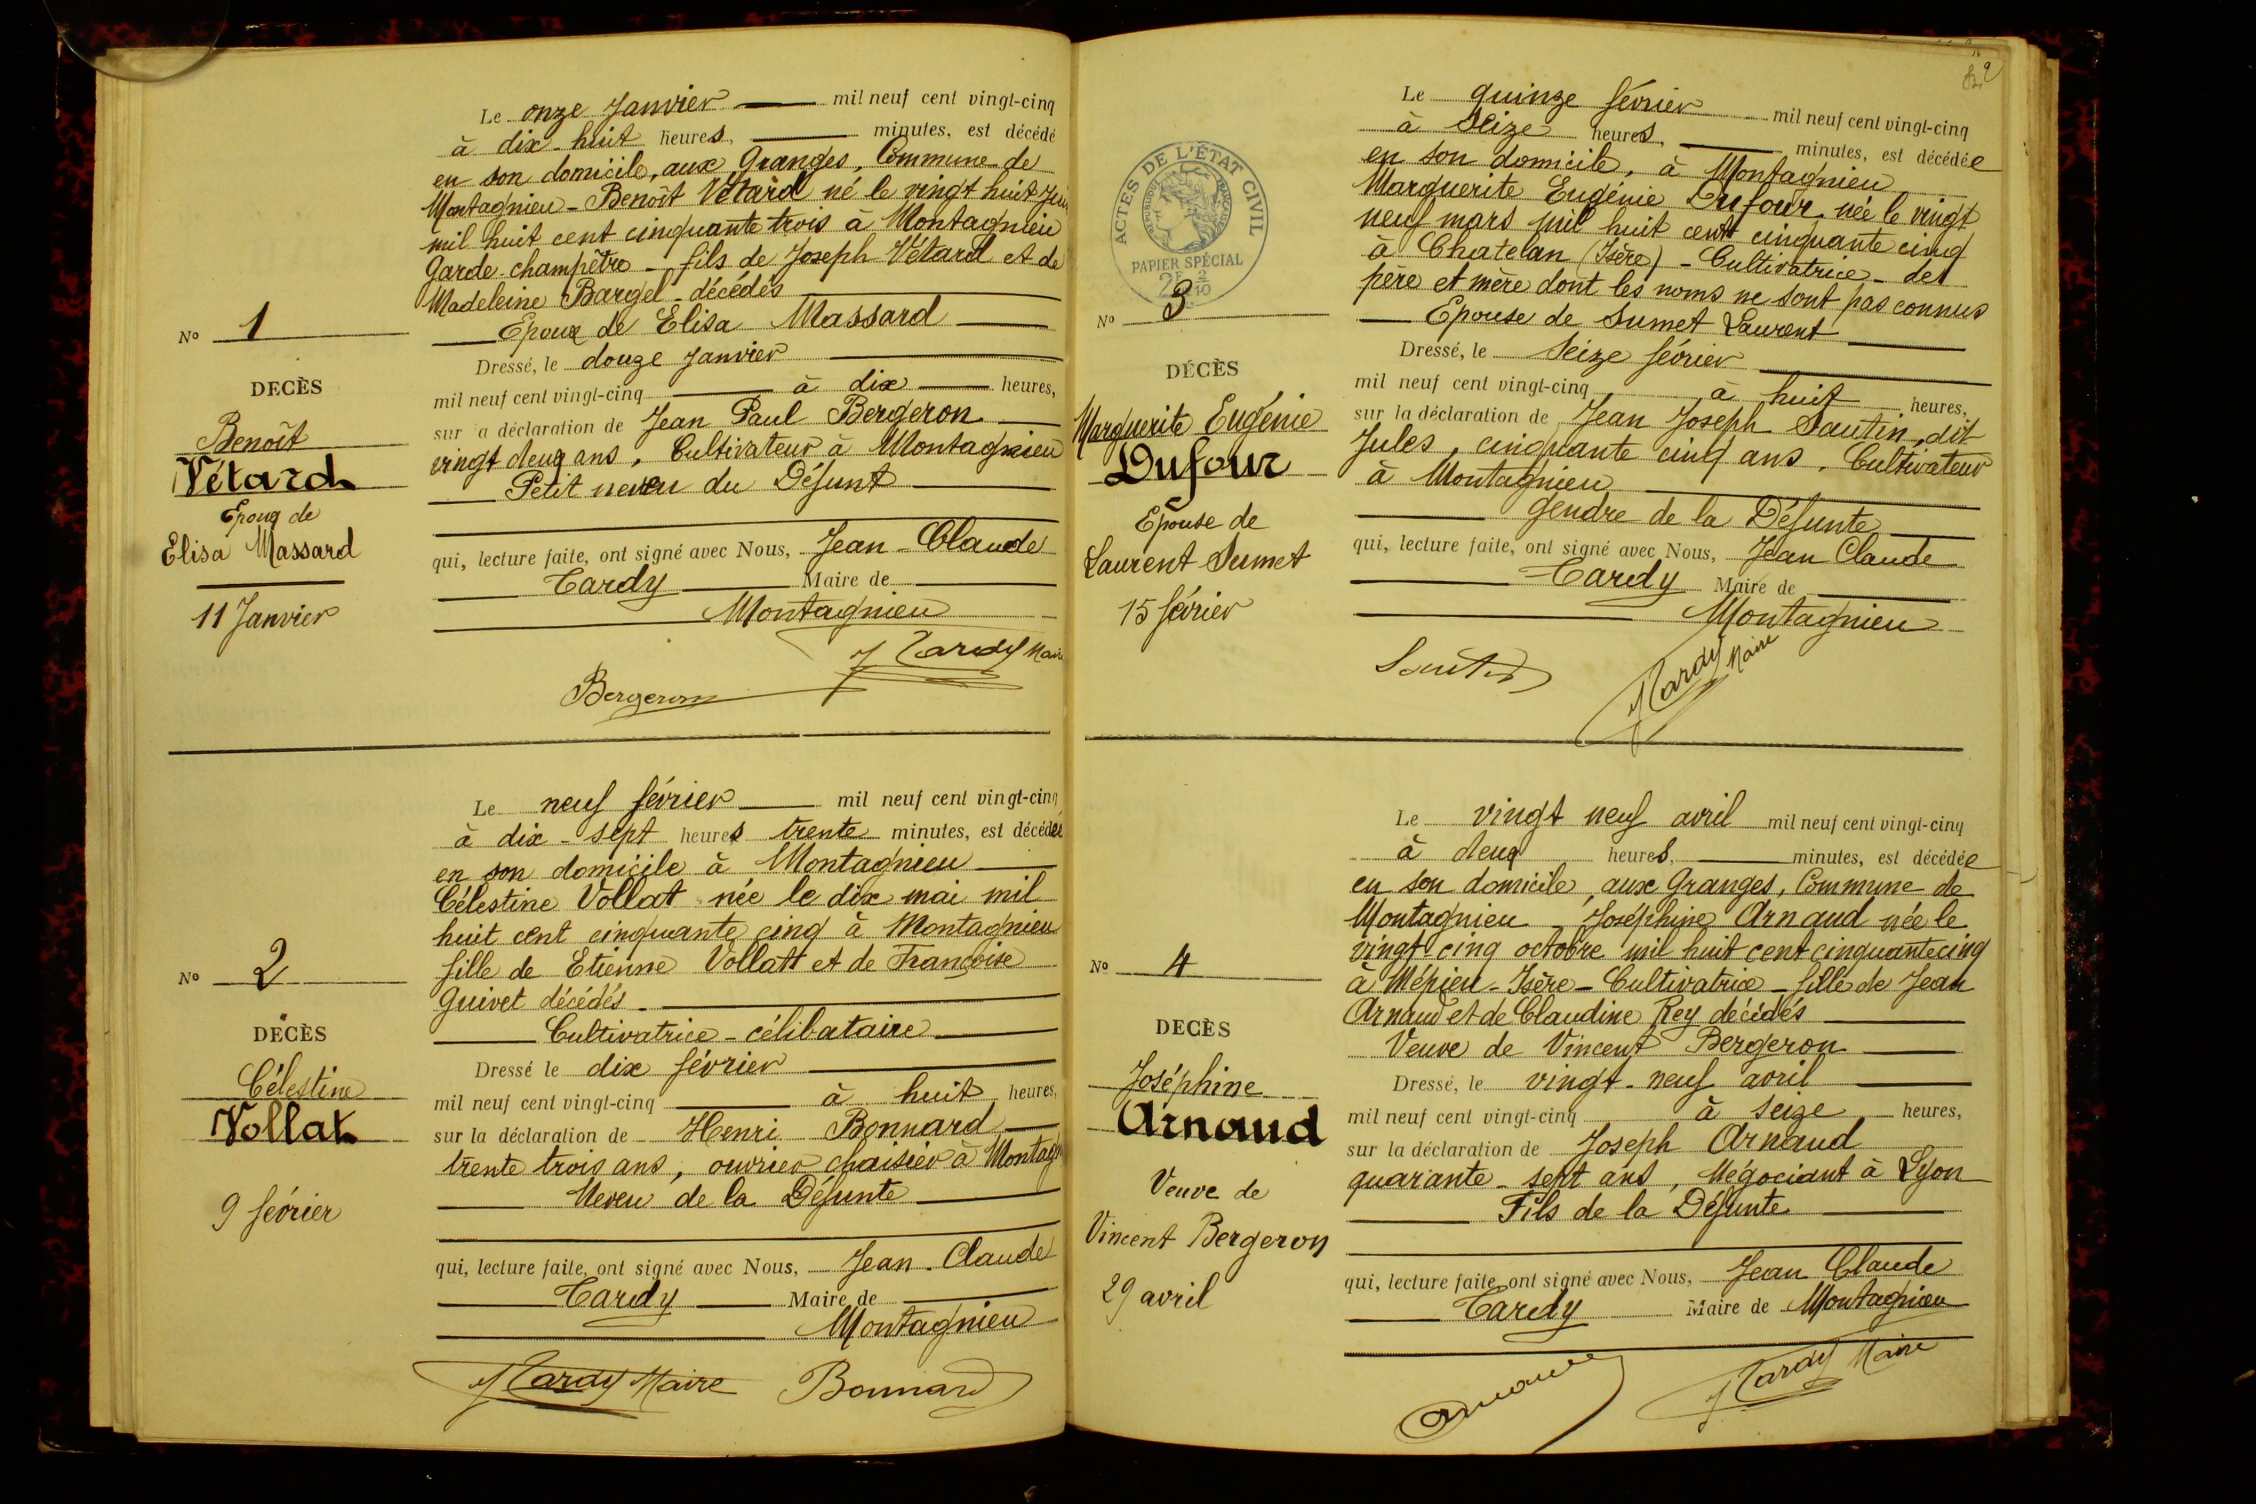 Le onze Janvier mil neuf cent vingt-cinq
à dix-huit heures, minutes, est décédé
en son domicile, aux Granges, Commune de
Montagnieu - Benoît Vétard né le vingt huit
mil huit cent cinquante trois à Montagnieu
Garde-champêtre - fils de Joseph Vétard et de
Madeleine Bargel - décédés
Epoux de Elisa Massard
Nº 1
DECÈS
Benoît
Vétard
Epoux de
Elisa Massard
11 Janvier
Dressé, le douze Janvier
mil neuf cent vingt-cinq à dix heures,
sur la déclaration de Jean Paul Bergeron
vingt deux ans, Cultivateur à Montagnieu
Petit neveu du Défunt
qui, lecture faite, ont signé avec Nous, Jean-Claude
Tardy Maire de
Montagnieu
J Tardy Maire
Bergeron
Le neuf février mil neuf cent vingt-cinq
à dix-sept heures trente minutes, est décédée
en son domicile à Montagnieu
Célestine Vollat née le dix mai mil
huit cent cinquante cinq à Montagnieu
fille de Etienne Vollatt et de Françoise
Guivet décédés
Cultivatrice - célibataire
Nº 2
DECÈS
Célestine
Vollat
9 février
Dressé le dix février
mil neuf cent vingt-cinq à huit heures,
sur la déclaration de Henri Bonnard
trente trois ans, ouvrier chaisier à Montagn
Neveu de la Défunte
qui, lecture faite, ont signé avec Nous, Jean-Claude
Tardy Maire de
Montagnieu
J Tardy Maire Bonnard
2
ACTES DE L'ÉTAT CIVIL
RÉPUBLIQUE FRANÇAISE
PAPIER SPÉCIAL
2F 2/10
Le quinze février mil neuf cent vingt-cinq
à Seize heures, minutes, est décédée
en son domicile, à Montagnieu
Marguerite Eugénie Dufour née le vingt
neuf mars mil huit cent cinquante cinq
à Chatelan (Isère) - Cultivatrice - des
père et mère dont les noms ne sont pas connus
Epouse de Sumet Laurent
Nº 3
DÉCÈS
Marguerite Eugénie
Dufour
Epouse de
Laurent Sumet
15 février
Dressé, le Seize février
mil neuf cent vingt-cinq à huit heures,
sur la déclaration de Jean Joseph Sautin, dit
Jules, cinquante cinq ans, Cultivateur
à Montagnieu
Gendre de la Défunte
qui, lecture faite, ont signé avec Nous, Jean Claude
Tardy Maire de
Montagnieu
J Tardy Maire
Le vingt neuf avril mil neuf cent vingt-cinq
à deux heures, minutes, est décédée
en son domicile, aux Granges, Commune de
Montagnieu - Joséphine Arnaud née le
vingt-cinq octobre mil huit cent cinquante cinq
à Mépieu - Isère - Cultivatrice - fille de Jean
Arnaud et de Claudine Rey décédés
Veuve de Vincent Bergeron
Nº 4
DECÈS
Joséphine
Arnaud
Veuve de
Vincent Bergeron
29 avril
Dressé, le vingt-neuf avril
mil neuf cent vingt-cinq à seize heures,
sur la déclaration de Joseph Arnaud
quarante-sept ans, Négociant à Lyon
Fils de la Défunte
qui, lecture faite, ont signé avec Nous, Jean Claude
Tardy Maire de Montagnieu
Arnaud J Tardy Maire